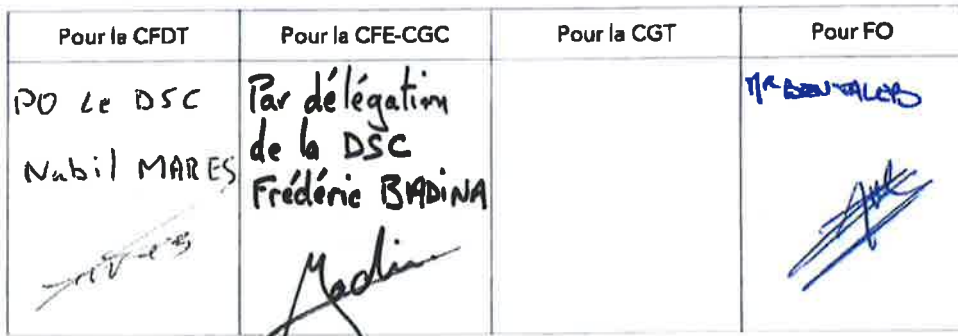 Pour la CFDT
Pour la CFE-CGC
Pour la CGT
Pour FO
PO Le DSC
Nabil MARES
Par délégation
de la DSC
Frédéric BIADINA
Mr BENTALEB